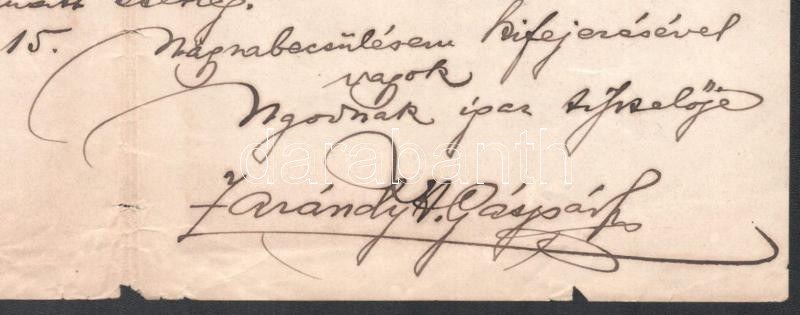 15. Nagyrabecsülésem kifejezésével
vagyok
Ngodnak igaz tisztelője
Zarándy A. Gáspár
darabanth